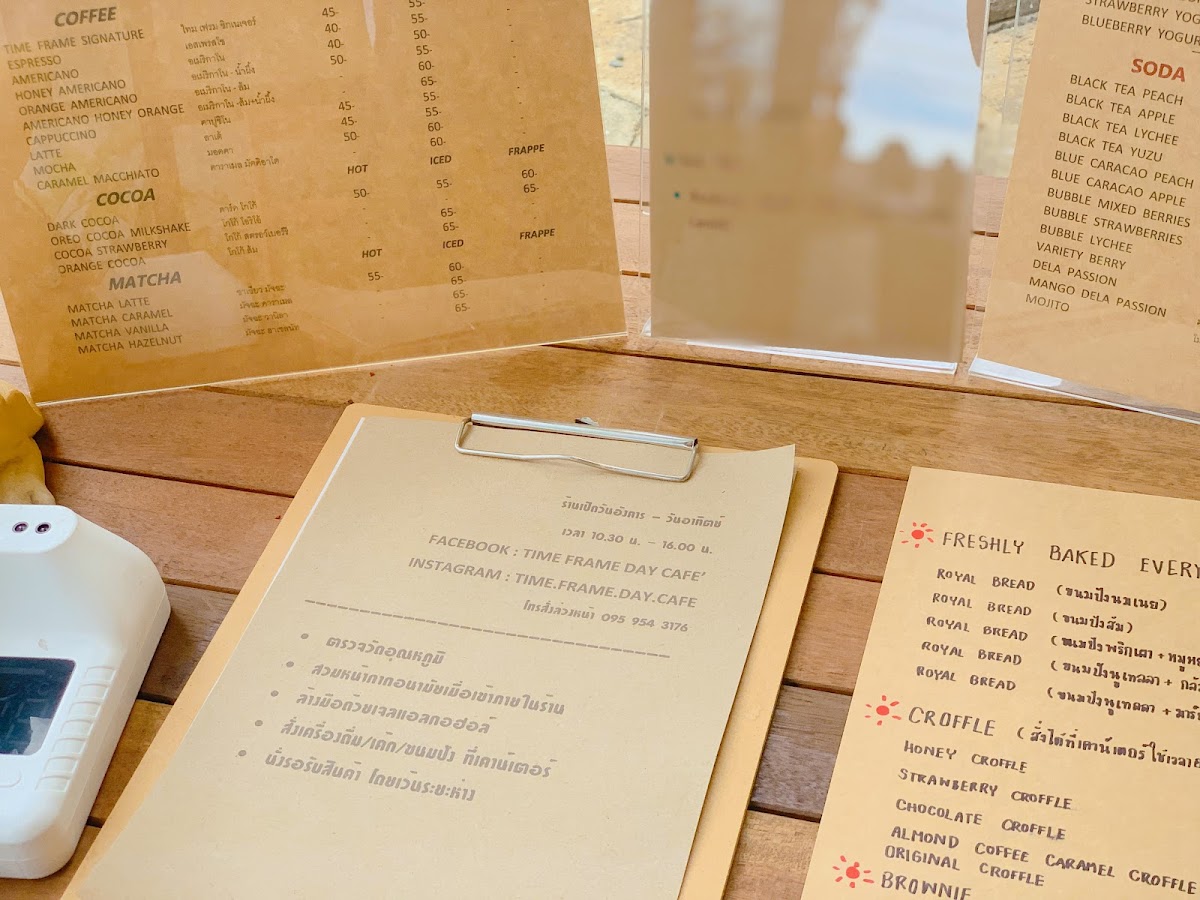 COFFEE
TIME FRAME SIGNATURE ไทม์ เฟรม ซิกเนเจอร์ 45- 55-
ESPRESSO เอสเพรสโซ่ 40- 55-
AMERICANO อเมริกาโน 40- 50-
HONEY AMERICANO อเมริกาโน - น้ำผึ้ง 50- 55-
ORANGE AMERICANO อเมริกาโน - ส้ม - 60-
AMERICANO HONEY ORANGE อเมริกาโน -ส้ม+น้ำผึ้ง - 65-
CAPPUCCINO คาปูชิโน 45- 55-
LATTE ลาเต้ 45- 55-
MOCHA มอคคา 50- 60-
CARAMEL MACCHIATO คาราเมล มัคคิอาโต - 60-
COCOA HOT ICED FRAPPE
DARK COCOA ดาร์ค โกโก้ 50- 55- 60-
OREO COCOA MILKSHAKE โกโก้ โอริโอ้ - - 65-
COCOA STRAWBERRY โกโก้ สตรอว์เบอร์รี่ - 65-
ORANGE COCOA โกโก้ ส้ม - 65-
MATCHA HOT ICED FRAPPE
MATCHA LATTE ชาเขียว มัจฉะ 55- 60-
MATCHA CARAMEL มัจฉะ คาราเมล - 65-
MATCHA VANILLA มัจฉะ วานิลา - 65-
MATCHA HAZELNUT มัจฉะ ฮาเซลนัท - 65-
STRAWBERRY YOG
BLUEBERRY YOGUR
SODA
BLACK TEA PEACH
BLACK TEA APPLE
BLACK TEA LYCHEE
BLACK TEA YUZU
BLUE CARACAO PEACH
BLUE CARACAO APPLE
BUBBLE MIXED BERRIES
BUBBLE STRAWBERRIES
BUBBLE LYCHEE
VARIETY BERRY
DELA PASSION
MANGO DELA PASSION
MOJITO
ร้านเปิดวันอังคาร – วันอาทิตย์
เวลา 10.30 น. – 16.00 น.
FACEBOOK : TIME FRAME DAY CAFE'
INSTAGRAM : TIME.FRAME.DAY.CAFE
โทรสั่งล่วงหน้า 095 954 3176
• ตรวจวัดอุณหภูมิ
• สวมหน้ากากอนามัยเมื่อเข้าภายในร้าน
• ล้างมือด้วยเจลแอลกอฮอล์
• สั่งเครื่องดื่ม/เค้ก/ขนมปัง ที่เคาน์เตอร์
• นั่งรอรับสินค้า โดยเว้นระยะห่าง
FRESHLY BAKED EVERY
ROYAL BREAD (ขนมปังนมเนย)
ROYAL BREAD (ขนมปังส้ม)
ROYAL BREAD (ขนมปังพริกเผา + หมูหย
ROYAL BREAD (ขนมปังนูเทลลา + กล้
ROYAL BREAD (ขนมปังนูเทลลา + มาร์
CROFFLE (สั่งได้ที่เคาน์เตอร์ ใช้เวลา
HONEY CROFFLE
STRAWBERRY CROFFLE
CHOCOLATE CROFFLE
ALMOND COFFEE CARAMEL CROFFLE
ORIGINAL CROFFLE
BROWNIE